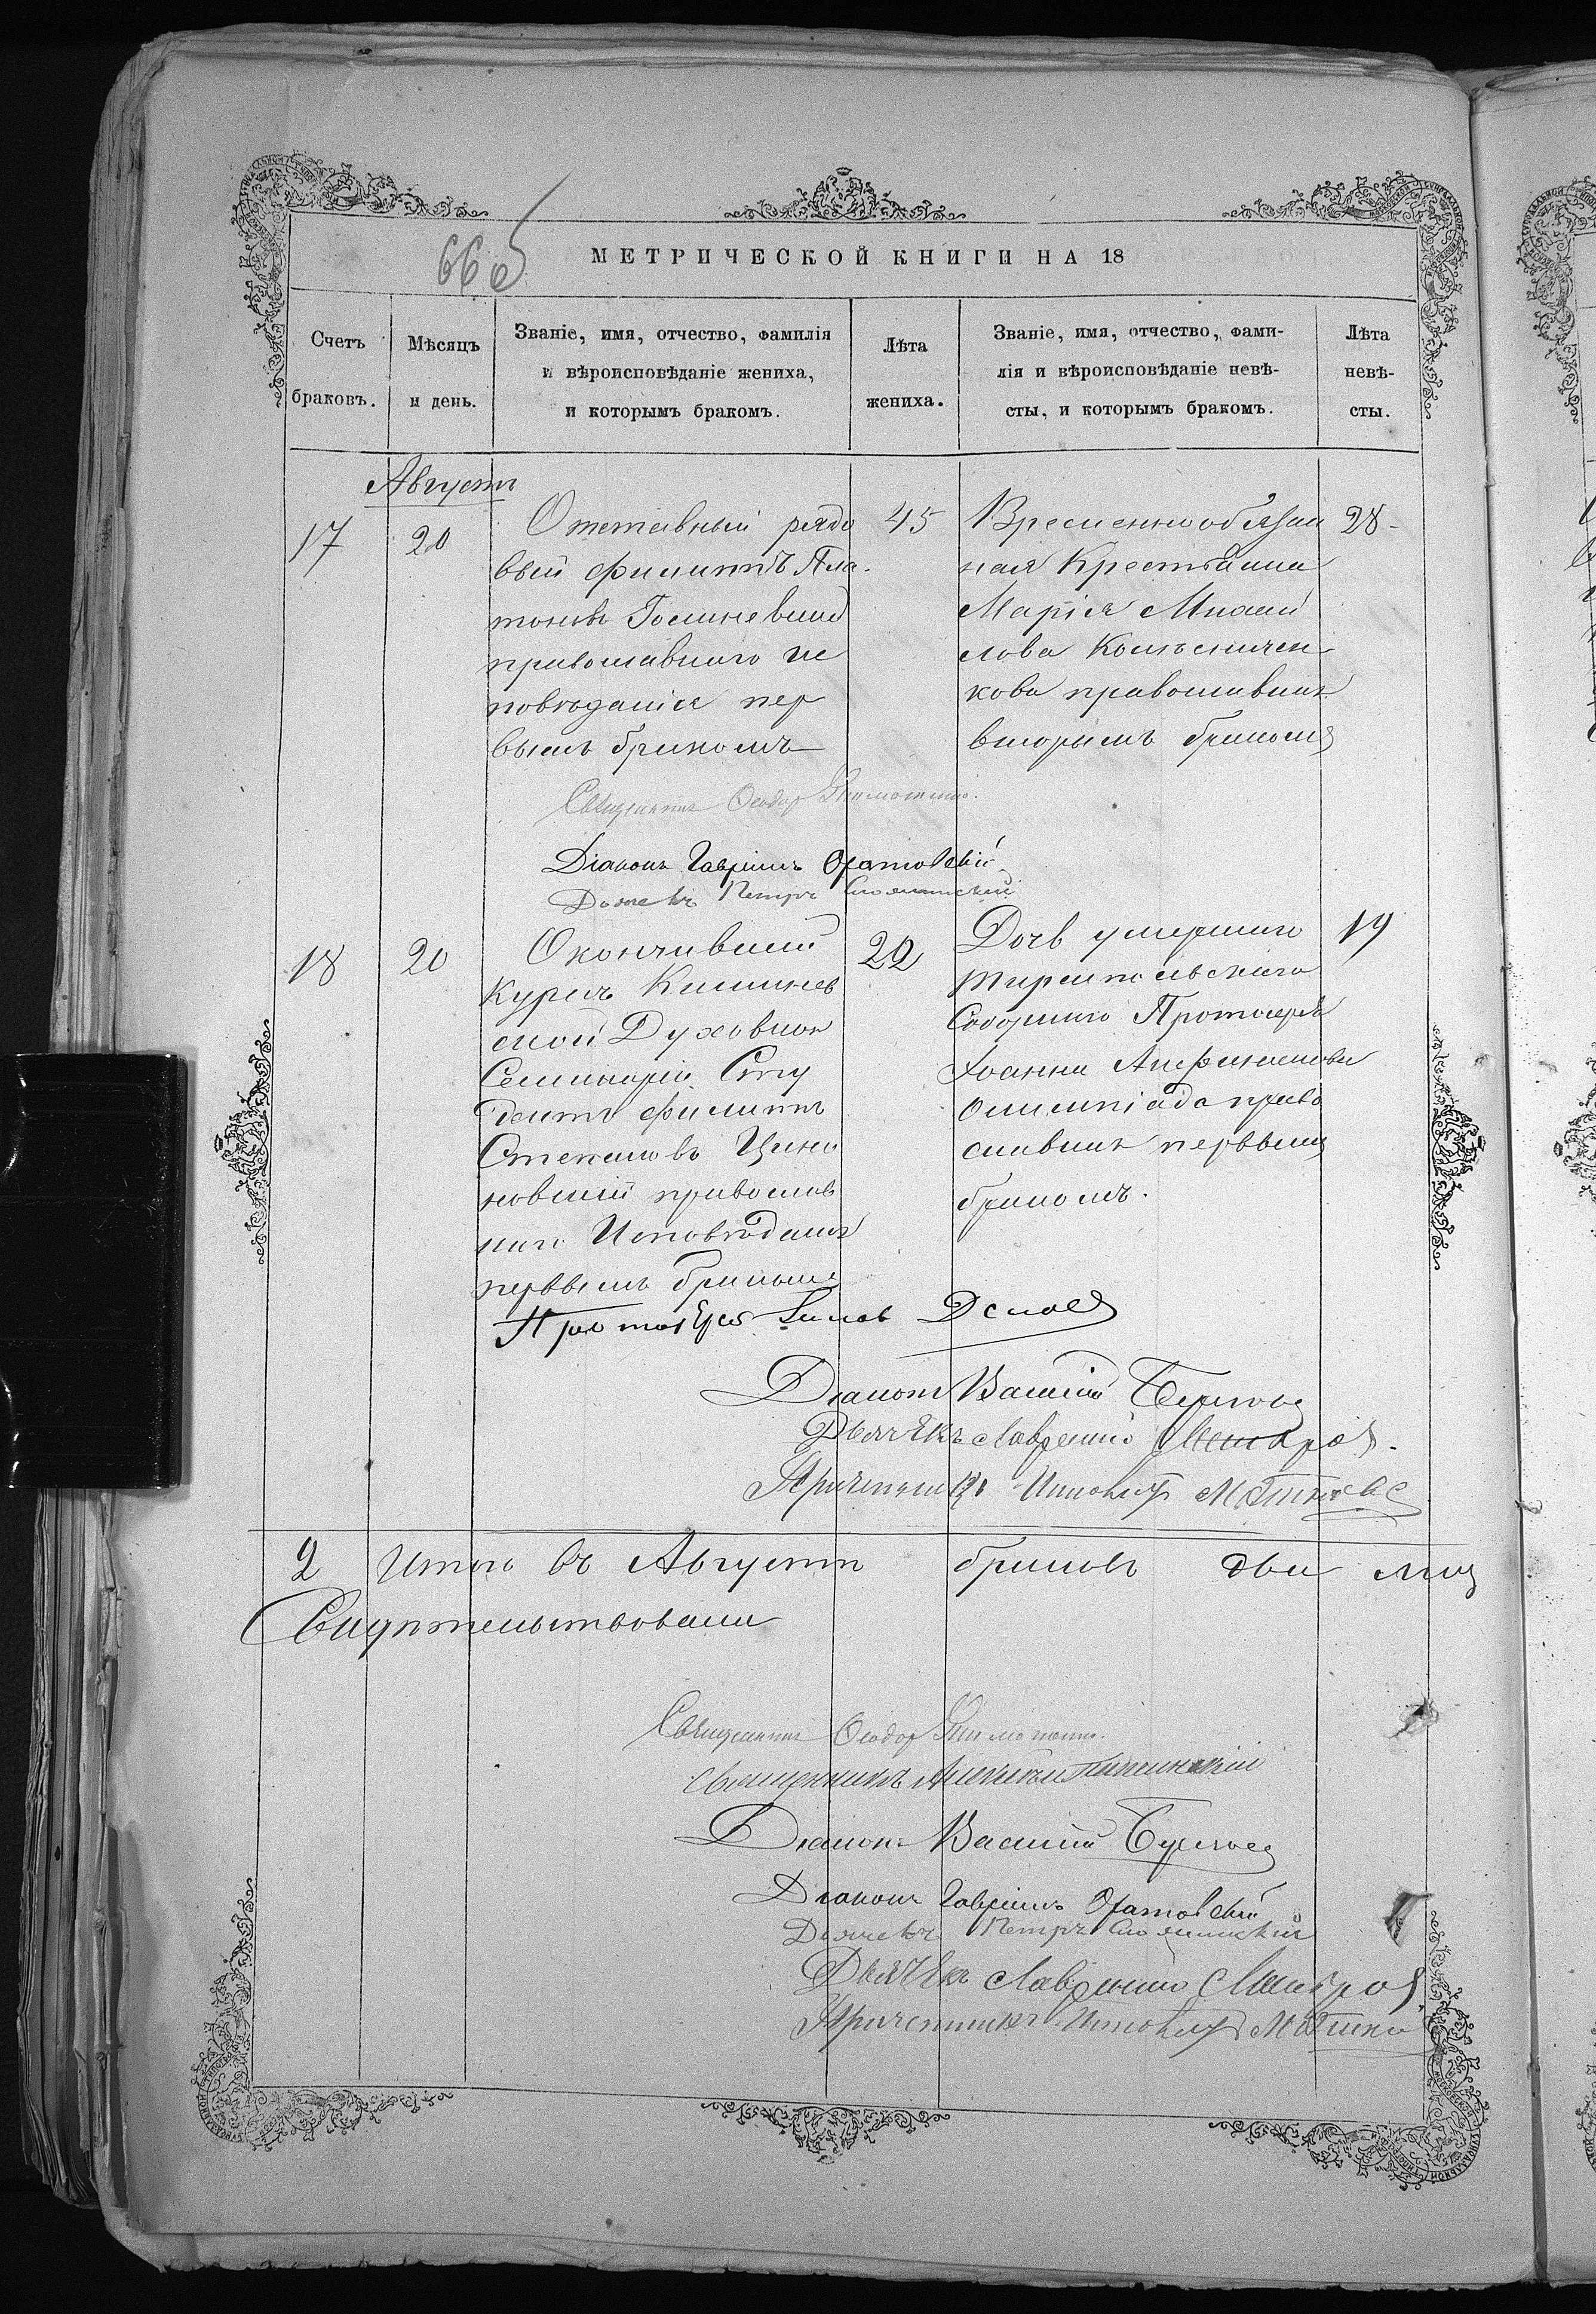 666
МЕТРИЧЕСКОЙ КНИГИ НА 18
Счетъ браковъ.
Мѣсяцъ и день.
Званіе, имя, отчество, фамилія
и вѣроисповѣданіе жениха,
и которымъ бракомъ.
Лѣта жениха.
Званіе, имя, отчество, фами-
лія и вѣроисповѣданіе невѣ-
сты, и которымъ бракомъ.
Лѣта невѣ-
сты.
Августъ
17
20
Отставный рядо
вый Филиппъ Пла
тоновъ
православнаго ис
повѣданія пер
вымъ бракомъ
45
Временнообязан
ная Крестьянка
Марія Михай
лова Колесничен
кова православная
вторымъ бракомъ
28
Священникъ Ѳеодор
Діаконъ Гавріилъ Оратовскій
Дьячекъ Петръ
18
20
Окончившій
курсъ Кишинев
ской Духовной
Семинаріи Сту
дентъ Филиппъ
Стефановъ
православ
наго Исповѣданія
первымъ бракомъ
22
Дочь умершаго
Тираспольскаго
Соборнаго Протоіерея
Іоанна
Олимпіада право
славная первымъ
бракомъ.
19
Протоіерей
Діаконъ Василій
Дьячекъ Лаврентій
Причетникъ Ипполитъ
2 Итого въ Августѣ браковъ два
Свидѣтельствовали
Священникъ Ѳеодор
Священникъ Алексѣй
Діаконъ Василій
Діаконъ Гавріилъ Оратовскій
Дьячекъ Петръ
Дьячекъ Лаврентій
Причетникъ Ипполитъ